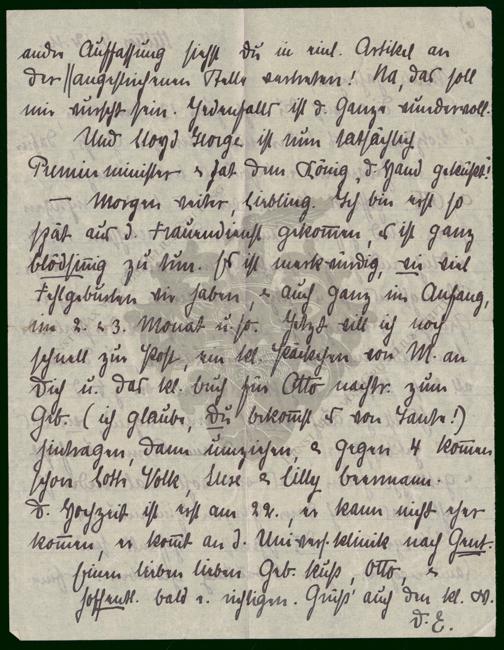 andre Auffassung siehst Du in einl. Artikel an
der || angestrichenen Stelle vertreten! Na, das soll
mir wurscht sein. Jedenfalls ist d. Ganze wundervoll.
Und Lloyd George ist nun tatsächlich
Premierminister & hat dem König d. Hand geküßt!
— Morgen weiter, Liebling. Ich bin erst so
spät aus d. Frauendienst gekommen, es ist ganz
blödsinnig zu tun. Es ist merkwürdig, wie viel
Fehlgeburten wir haben & auch ganz im Anfang,
im 2. & 3. Monat u. so. Jetzt will ich noch
schnell zur Post, ein kl. Päckchen von M. an
Dich u. das kl. Buch für Otto nachtr. zum
Geb. (ich glaube, Du bekomst es von Tante!)
hintragen, dann umziehen, & gegen 4 kommen
schon Lotte Volk, & Lilly Beermann.
D. Hochzeit ist erst am 22., er kann nicht eher
kommen, er komt an d. Univers.klinik nach Gent.
Einen lieben lieben Geb. Kuß, Otto &
hoffentl. bald e. richtigen. Grüß' auch den kl. W.
D. E.